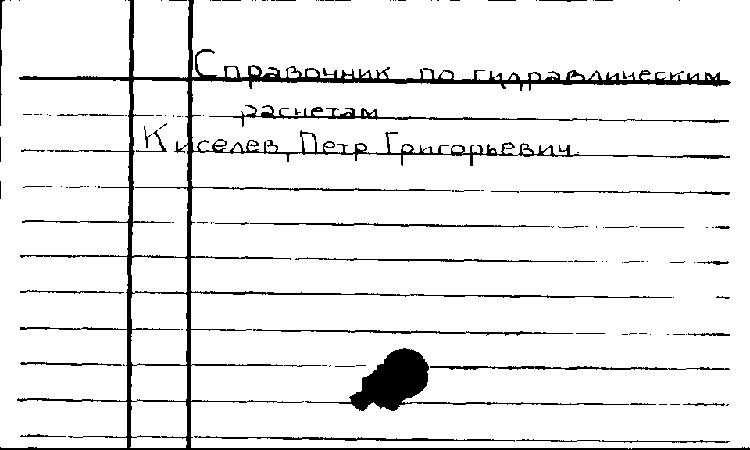 Справочник по гидравлическим
расчетам
Киселев, Петр Григорьевич.